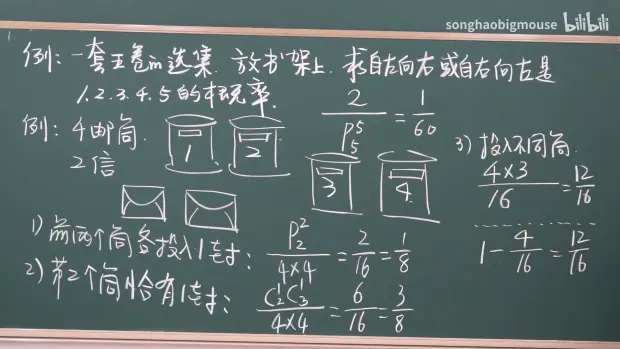 songhaobigmouse bilibili
例:一套五卷的选集.放书架上.求自左向右或自右向左是
1.2.3.4.5的概率.
2/P₅⁵ = 1/60
例:4邮筒.
2信
1
2
3
4
1)前两个筒各投入1封: P₂²/4×4 = 2/16 = 1/8
2)第2个筒恰有1封: C₂¹C₃¹/4×4 = 6/16 = 3/8
3)投入不同筒.
4×3/16 = 12/16
1 - 4/16 = 12/16